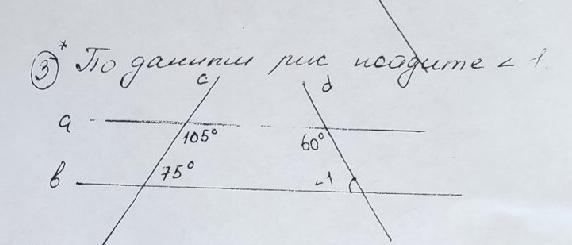 3* По данным рис найдите ∠ 1.
c d
a 105° 60°
75°
b 1